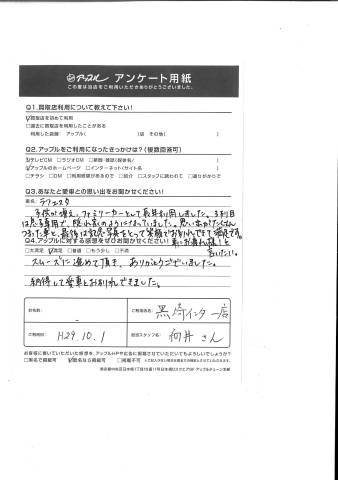 アップル アンケート用紙
この度は当店をご利用いただきありがとうございました。
Q1.買取店利用について教えて下さい!
☑買取店を初めて利用
□過去に買取店を利用したことがある
利用した店舗: アップル( )店 その他( )
Q2.アップルをご利用になったきっかけは?(複数回答可)
☑テレビCM □ラジオCM □新聞・雑誌(媒体名: )
☑アップルのホームページ □インターネット(サイト名 )
□チラシ □DM □利用経験があるので □紹介 □スタッフに誘われて □通りがかりで
Q3.あなたと愛車との思い出をお聞かせください!
車名: ラフェスタ
子供が増え、ファミリーカーとして長年利用しました。3列目
は思い出がたくさん
つまった車と、最後は記念写真をとって笑顔でお別れできて満足です。
Q4.アップルに対する感想をぜひお聞かせください!
車にお疲れ様!と
言いたい。
□大満足 ☑満足 □普通 □もう少し □不満
スムーズに進めて頂き、ありがとうございました。
納得して愛車とお別れできました。
お名前:
ご利用店名: 黒崎インター店
ご利用日: H29.10.1
担当スタッフ名: 向井さん
お客様に書いていただいた感想を、アップルHPや広告に掲載させていただいてもよろしいでしょうか?
□実名で掲載可 ☑匿名なら掲載可 □掲載不可